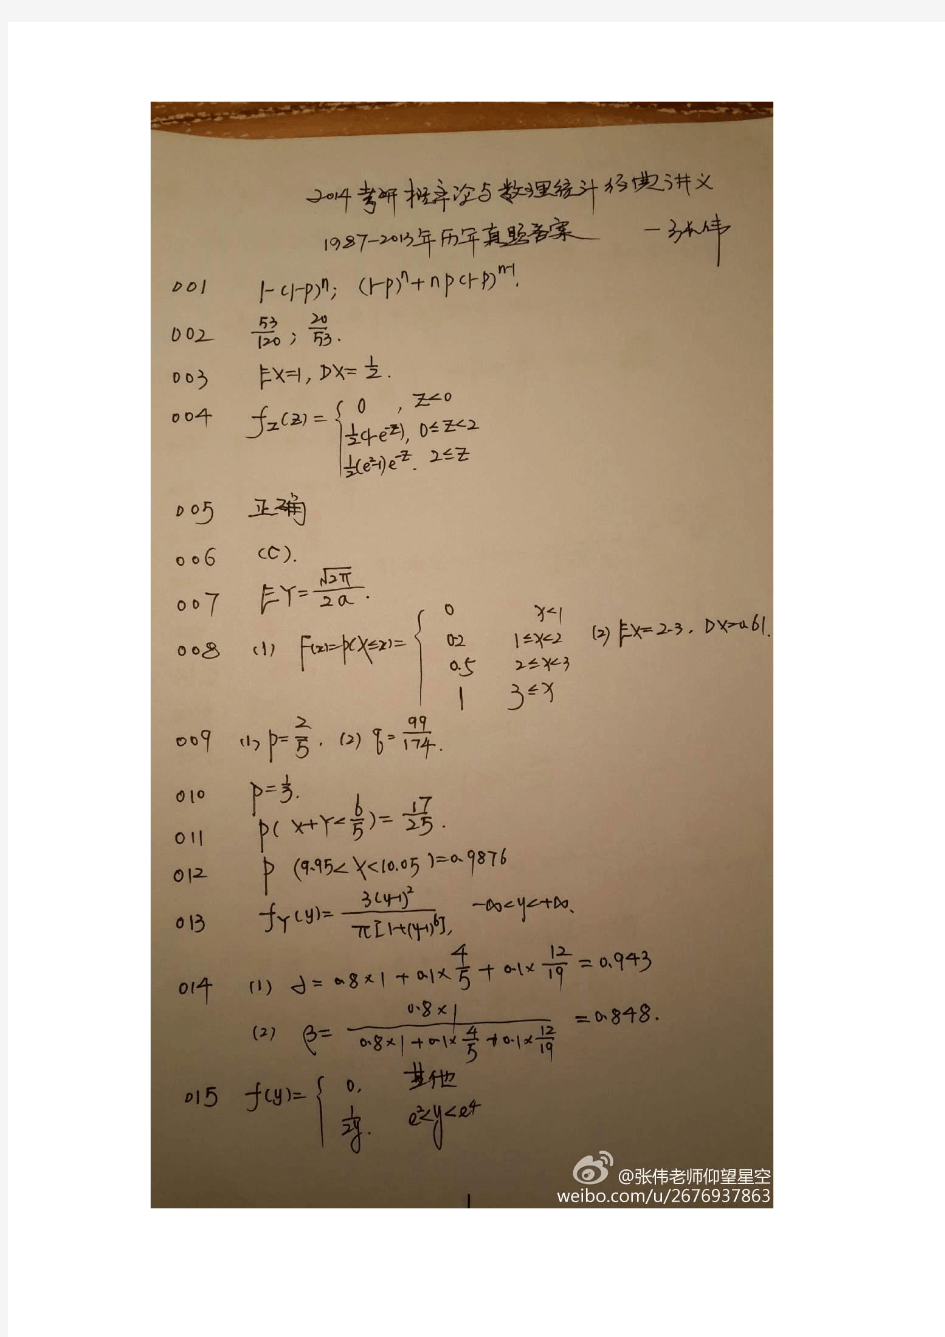 2014考研概率论与数理统计经典讲义
1987-2013年历年真题答案 —张伟
001 1-(1-p)^n; (1-p)^n+np(1-p)^{n-1}.
002 53/120; 20/53.
003 EX=1, DX=1/2.
004 f_Z(z)={ 0, z<0
1/2(1-e^{-z}), 0≤z<2
1/2(e^2-1)e^{-z}. 2≤z
005 正确
006 (C).
007 EY=√(2π)/2a.
008 (1) F(x)=P(X≤x)={ 0 x<1
0.2 1≤x<2 (2) EX=2.3, DX=0.61.
0.5 2≤x<3
1 3≤x
009 (1) p=2/5. (2) q=99/174.
010 p=1/3.
011 P(X+Y<6/5)=17/25.
012 P(9.95<X<10.05)=0.9876
013 f_Y(y)=3(y-1)^2/π[1+(y-1)^6], -∞<y<+∞.
014 (1) α=0.8×1+0.1×4/5+0.1×12/19=0.943
(2) β=0.8×1/(0.8×1+0.1×4/5+0.1×12/19)=0.848.
015 f(y)={ 0, 其他
1/2y. e^2<y<e^4
@张伟老师仰望星空
weibo.com/u/2676937863
1